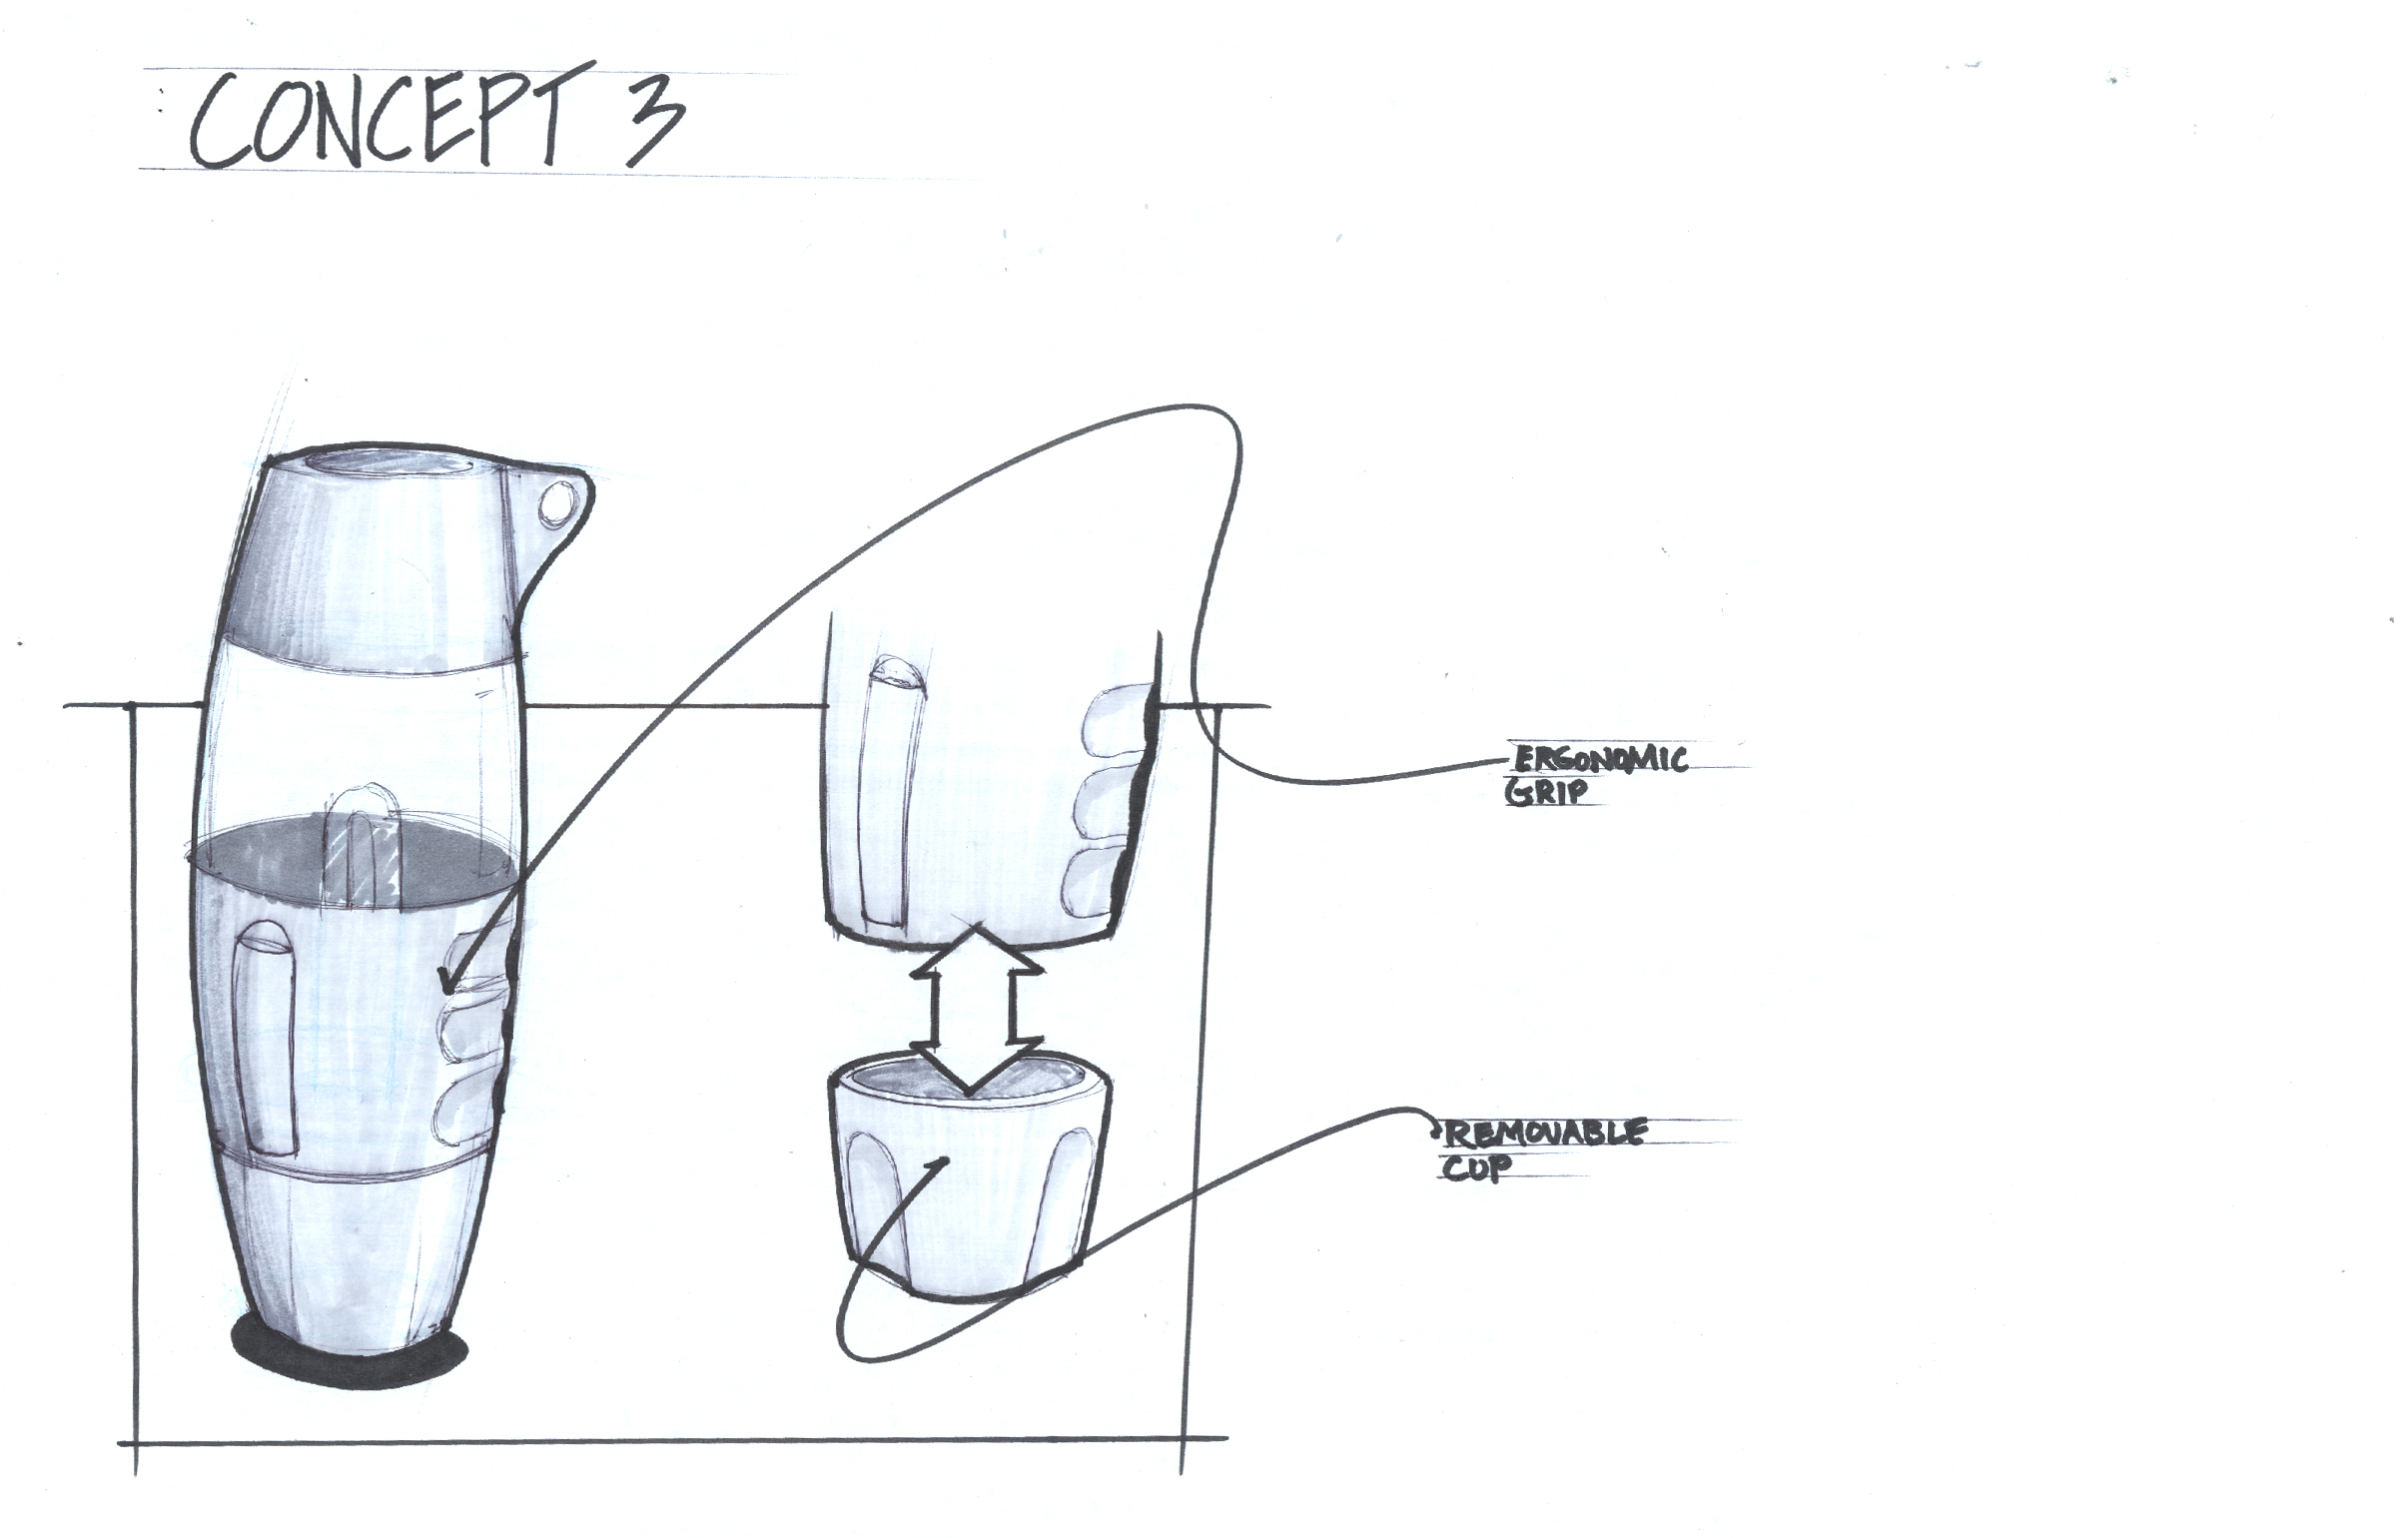 CONCEPT 3
ERGONOMIC
GRIP
REMOVABLE
CUP